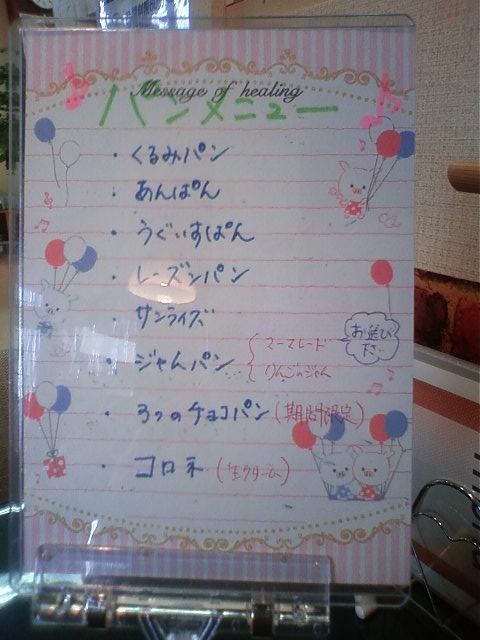 Message of healing
パンメニュー
・くるみパン
・あんぱん
・うぐいすぱん
・レーズンパン
・サンライズ
・ジャムパン { マーマレード りんごのジャム
お選び下さい
・3つのチョコパン (期間限定)
・コロネ (生クリーム)